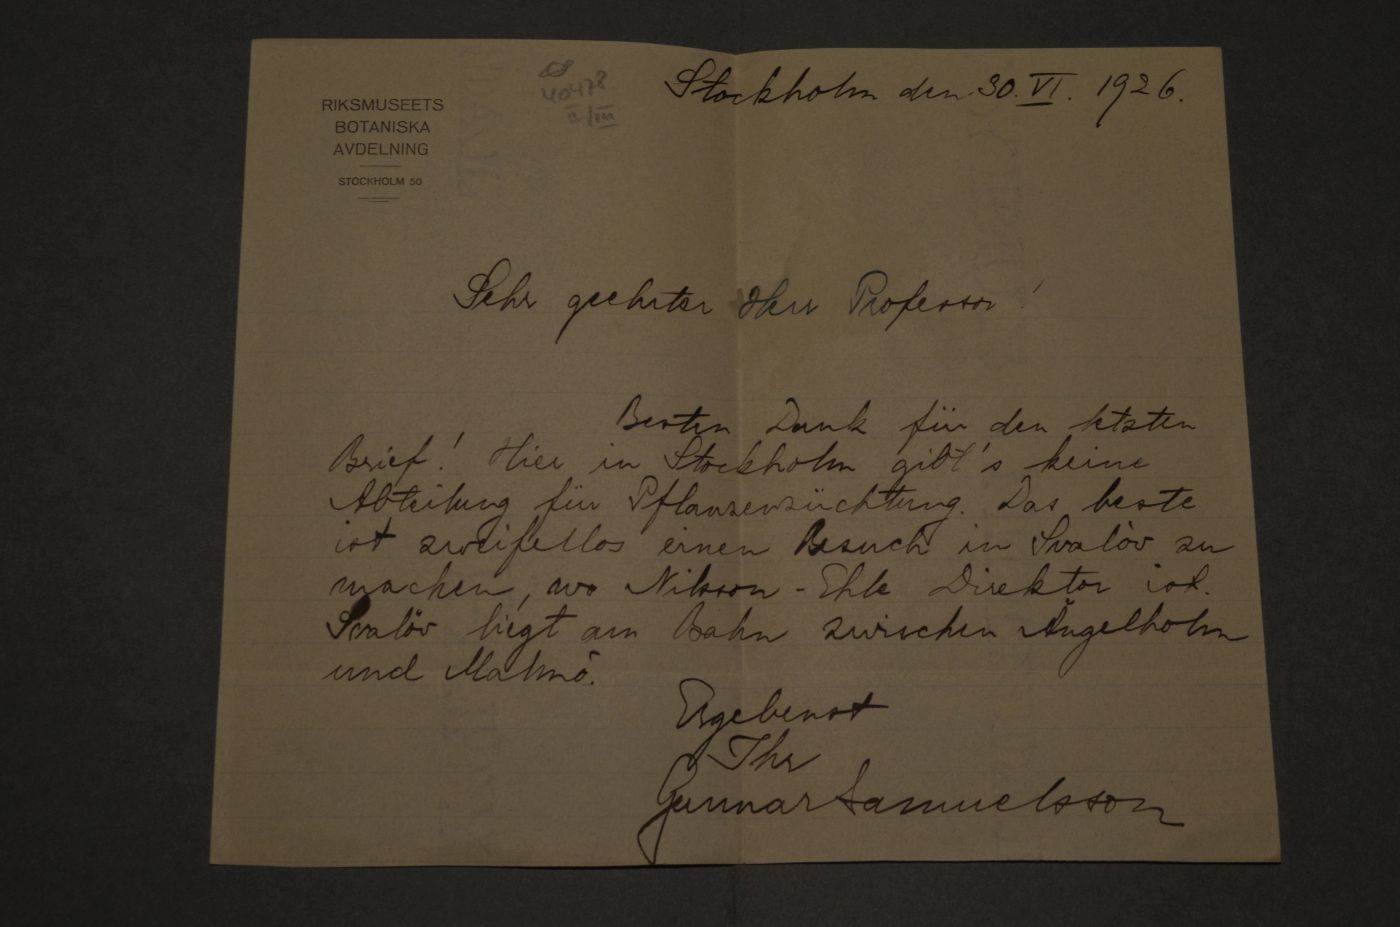 RIKSMUSEETS
BOTANISKA
AVDELNING
STOCKHOLM 50
40478
Stockholm den 30. VI. 1926.
Sehr geehrter Herr Professor!
Besten Dank für den letzten
Brief! Hier in Stockholm gibt's keine
Abteilung für Pflanzenzüchtung. Das beste
ist zweifellos einen Besuch in Svalöv zu
machen, wo Nilsson-Ehle Direktor ist.
Svalöv liegt am Bahn zwischen Ängelholm
und Malmö.
Ergebenst
Ihr
Gunnar Samuelsson